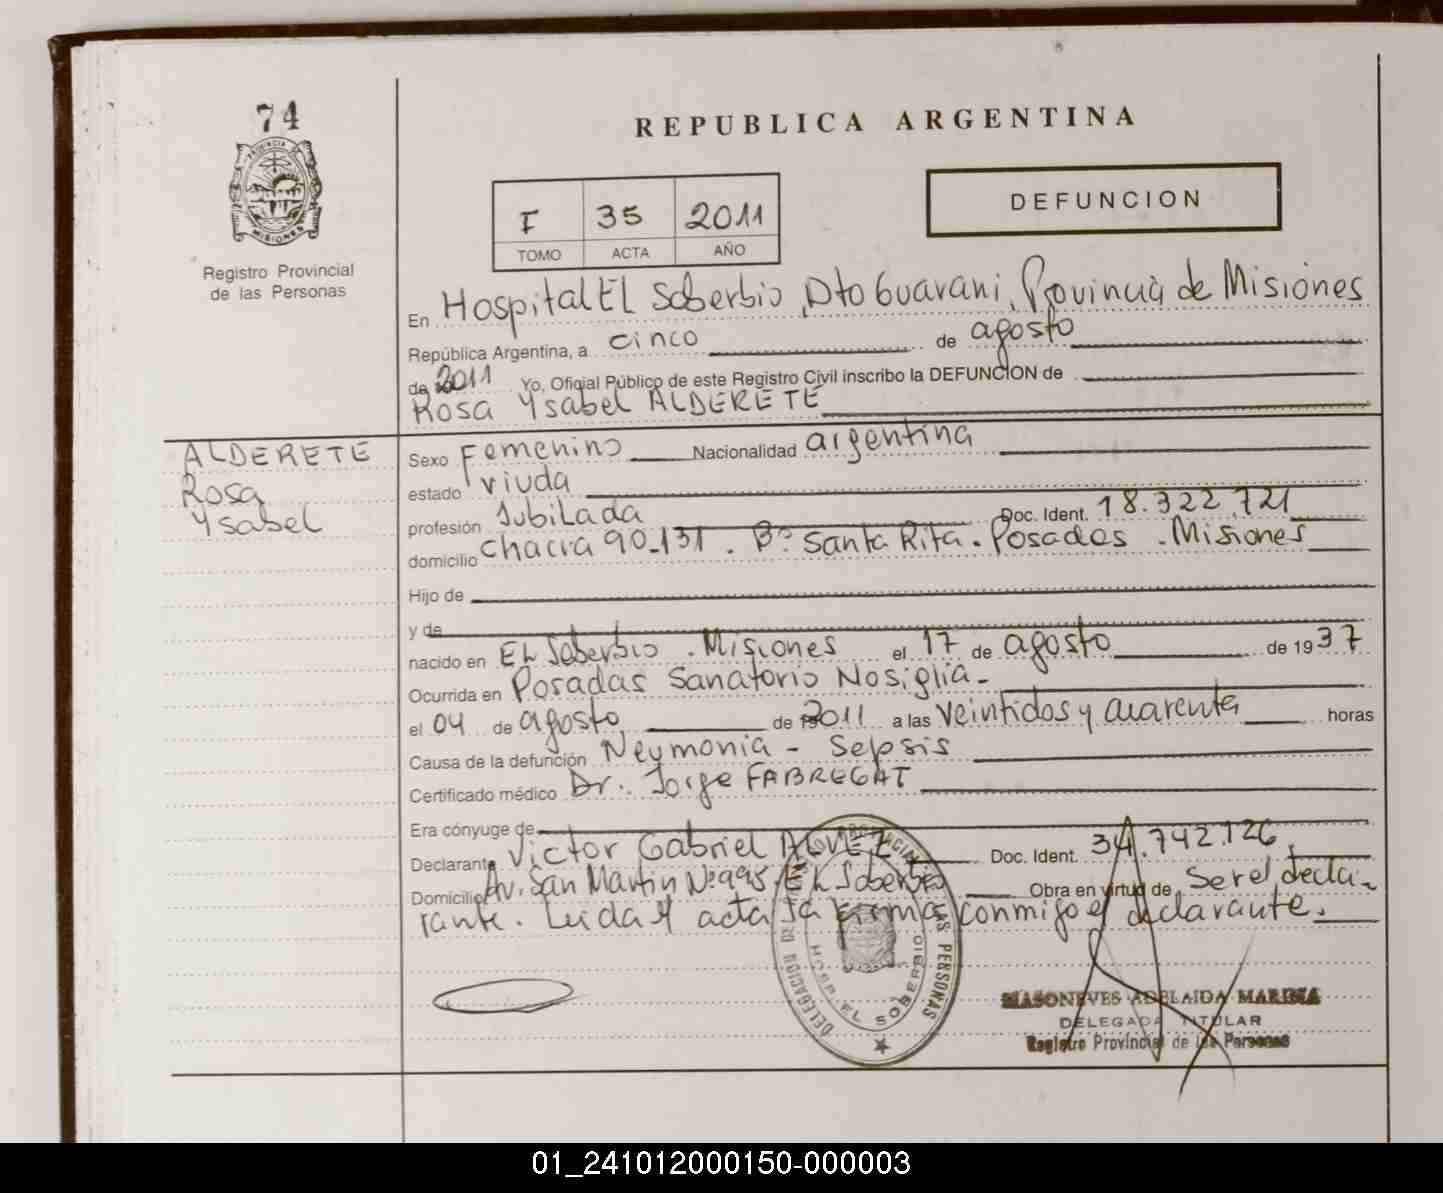 74
PROVINCIA DE
MISIONES
Registro Provincial
de las Personas
REPUBLICA ARGENTINA
I 35 2011
TOMO ACTA AÑO
DEFUNCION
En Hospital El Soberbio, Dto Guarani, Provincia de Misiones
República Argentina, a cinco de agosto
de 2011 Yo, Oficial Público de este Registro Civil inscribo la DEFUNCION de
Rosa Ysabel ALDERETE
ALDERETE
Rosa
Ysabel
Sexo Femenino Nacionalidad argentina
estado viuda
profesión Jubilada Doc. Ident. 18.322.721
domicilio Chacra 90-131. Bº Santa Rita. Posadas. Misiones
Hijo de
y de
nacido en El Soberbio. Misiones el 17 de agosto de 1937
Ocurrida en Posadas Sanatorio Nosiglia.
el 04 de agosto de 2011 a las veintidos y cuarenta horas
Causa de la defunción Neumonia - Sepsis
Certificado médico Dr. Jorge FABREGAT
Era cónyuge de
Declarante Victor Gabriel ALVEZ Doc. Ident. 34.742.126
Domicilio Av. San Martin Nº 995. El Soberbio Obra en virtud de Ser el decla-
rante. Leida el acta la firma conmigo el declarante.
DELEGACION PROVINCIAL DE LAS PERSONAS
HOSP. EL SOBERBIO
MASONEVES ADELAIDA MARISA
DELEGADA TITULAR
Registro Provincial de las Personas
01_241012000150-000003